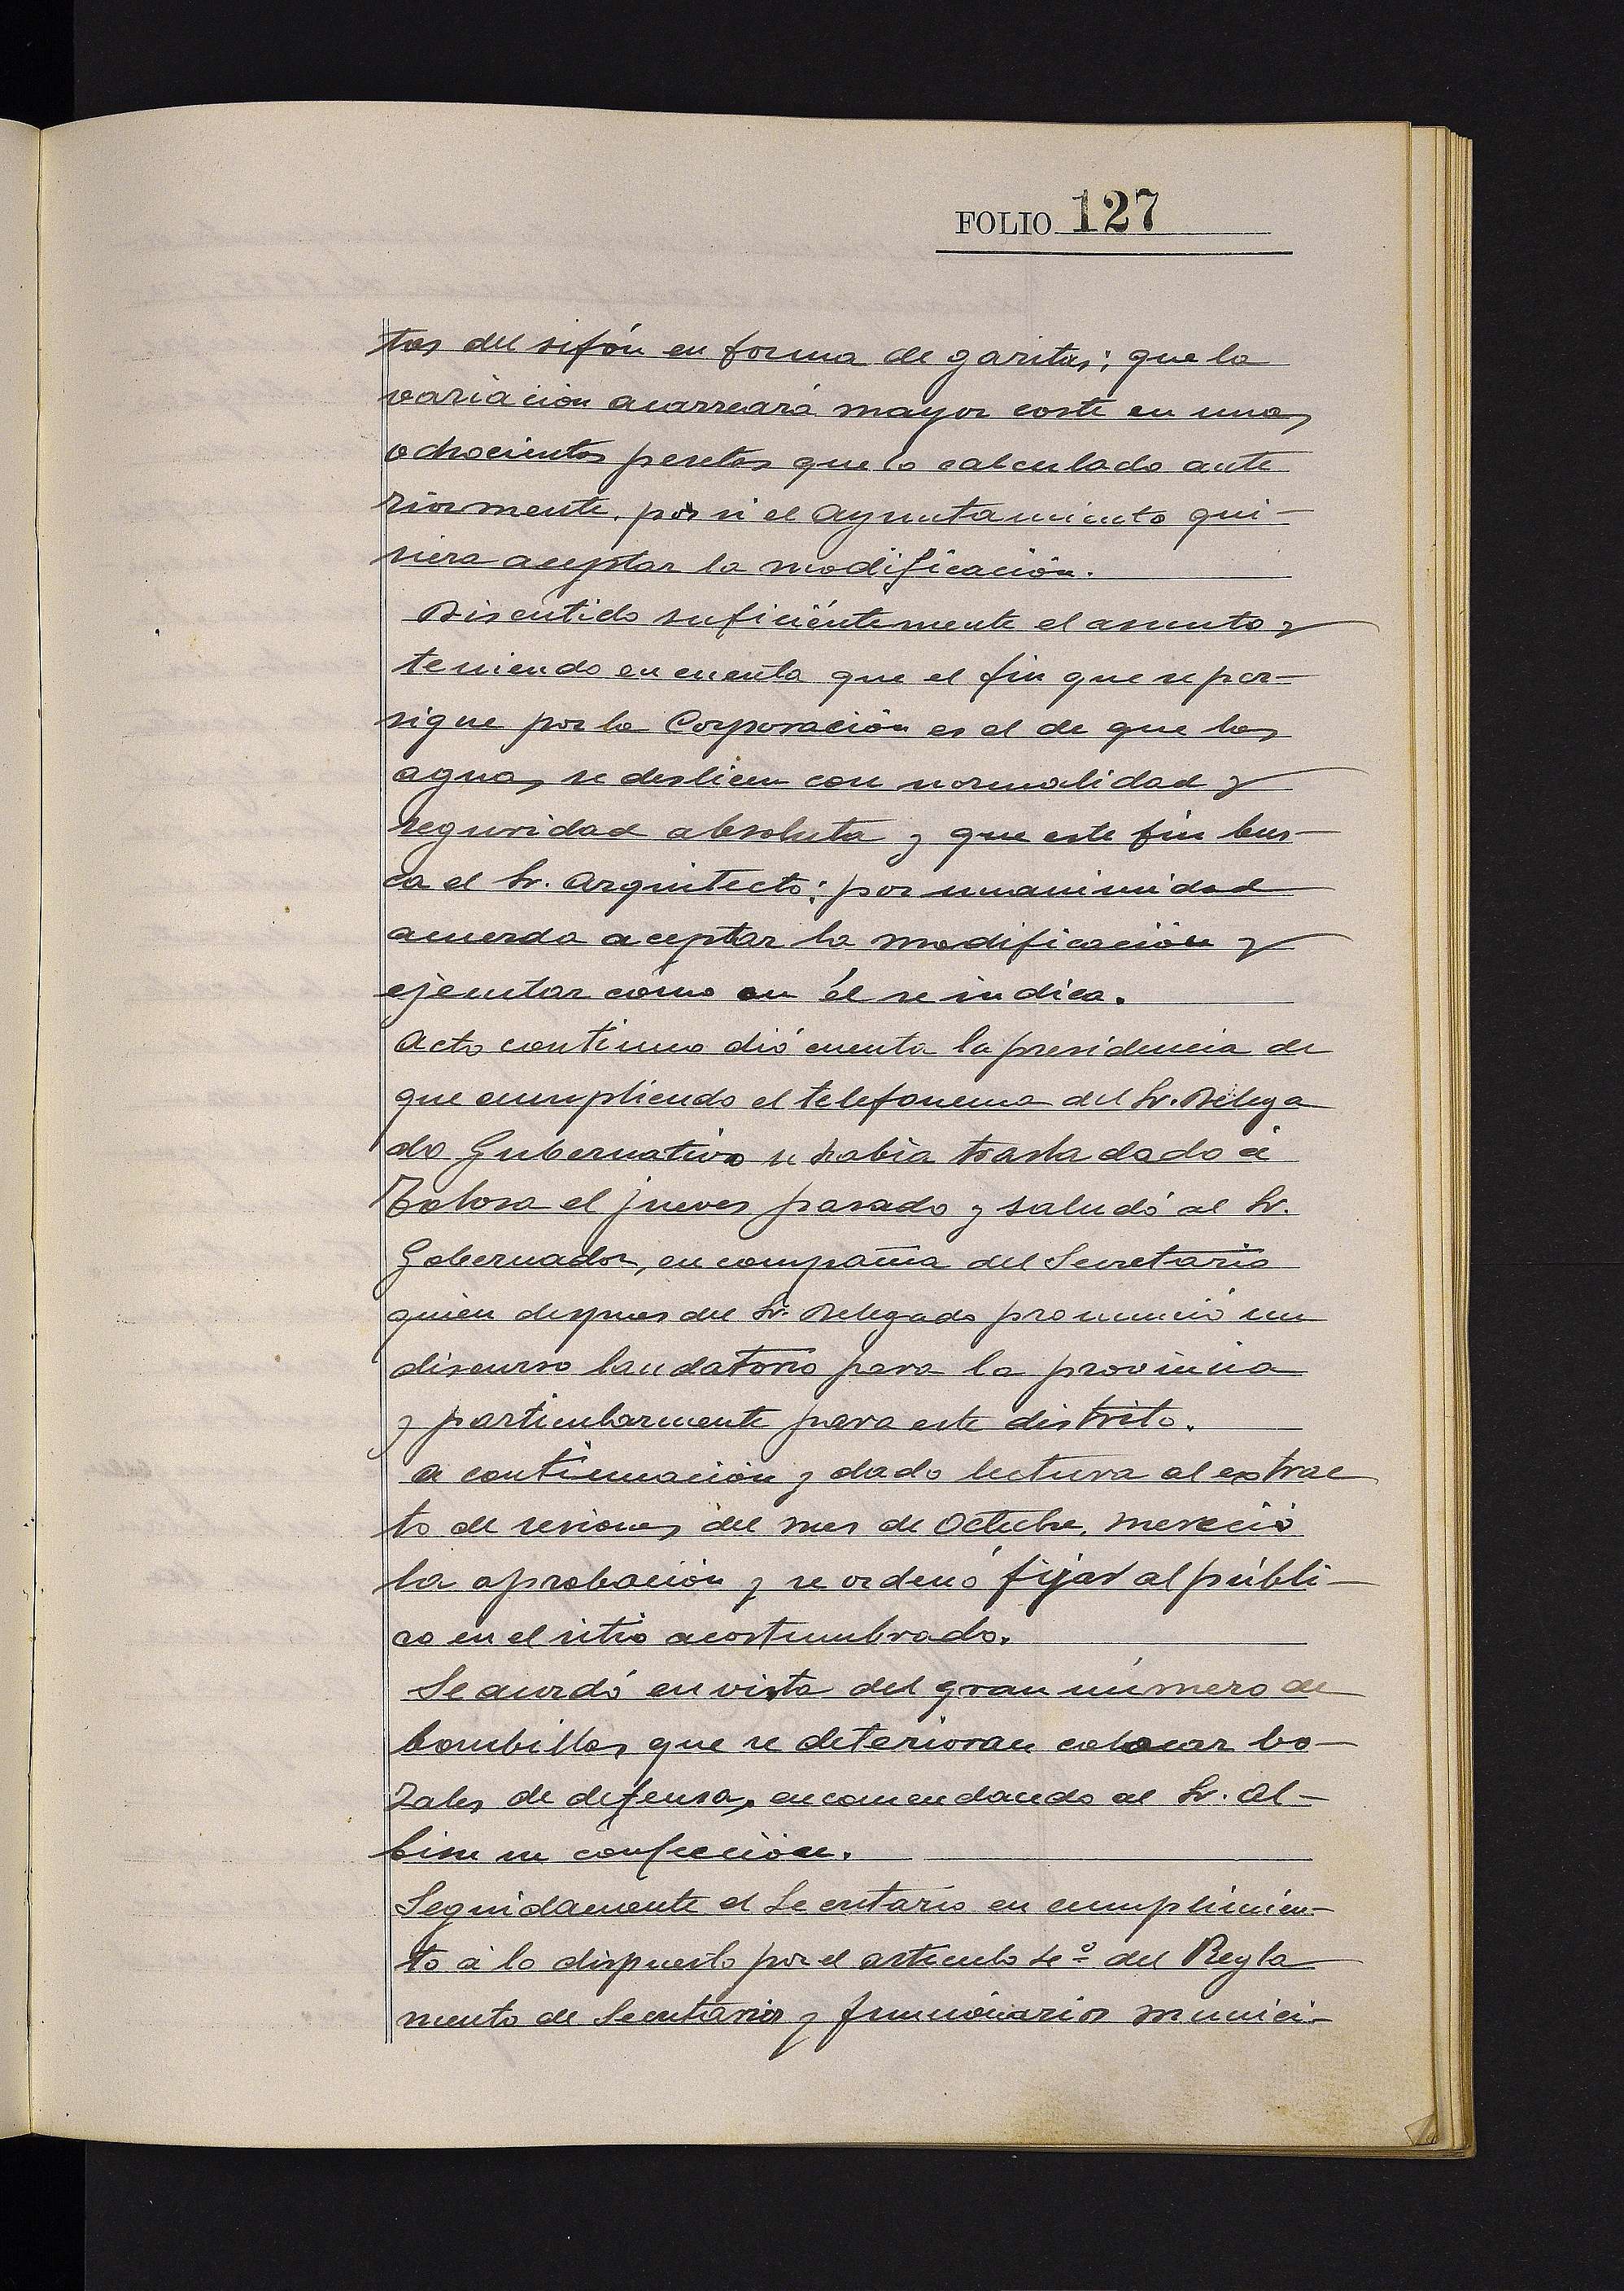 FOLIO 127
tos del sifón en forma de garitas; que la
variación acarreará mayor coste en unas
ochocientas pesetas que lo calculado ante
riormente, por si el Ayuntamiento qui-
siera aceptar la modificación.
Discutido suficiéntemente el asunto y
teniendo en cuenta que el fin que se per-
sigue por la Corporación es el de que las
aguas se deslicen con normalidad y
seguridad absoluta y que este fin bus-
ca el Sr. Arquitecto; por unanimidad
acuerda aceptar la modificación y
ejecutar cómo en él se indica.
Acto continuo dió cuenta la presidencia de
que cumpliendo el telefonema del Sr. Delega
do Gubernativo se habia trasladado á
Tolosa el jueves pasado y saludó al Sr.
Gobernador, en compañia del Secretario
quien despues del Sr. Delegado pronunció un
discurso laudatorio para la provincia
y particularmente para este distrito.
A continuación y dado lectura al extrac
to de sesiones del mes de Octubre, mereció
la aprobación y se ordenó fijar al públi-
co en el sitio acostumbrado.
Se acordó en vista del gran número de
bombillas que se deterioran colocar bo-
zales de defensa, encomendando al Sr. Al-
bisu su confección.
Seguidamente el Secretario en cumplimien-
to á lo dispuesto por el articulo 4º del Regla
mento de Secretarios y funcionarios munici-